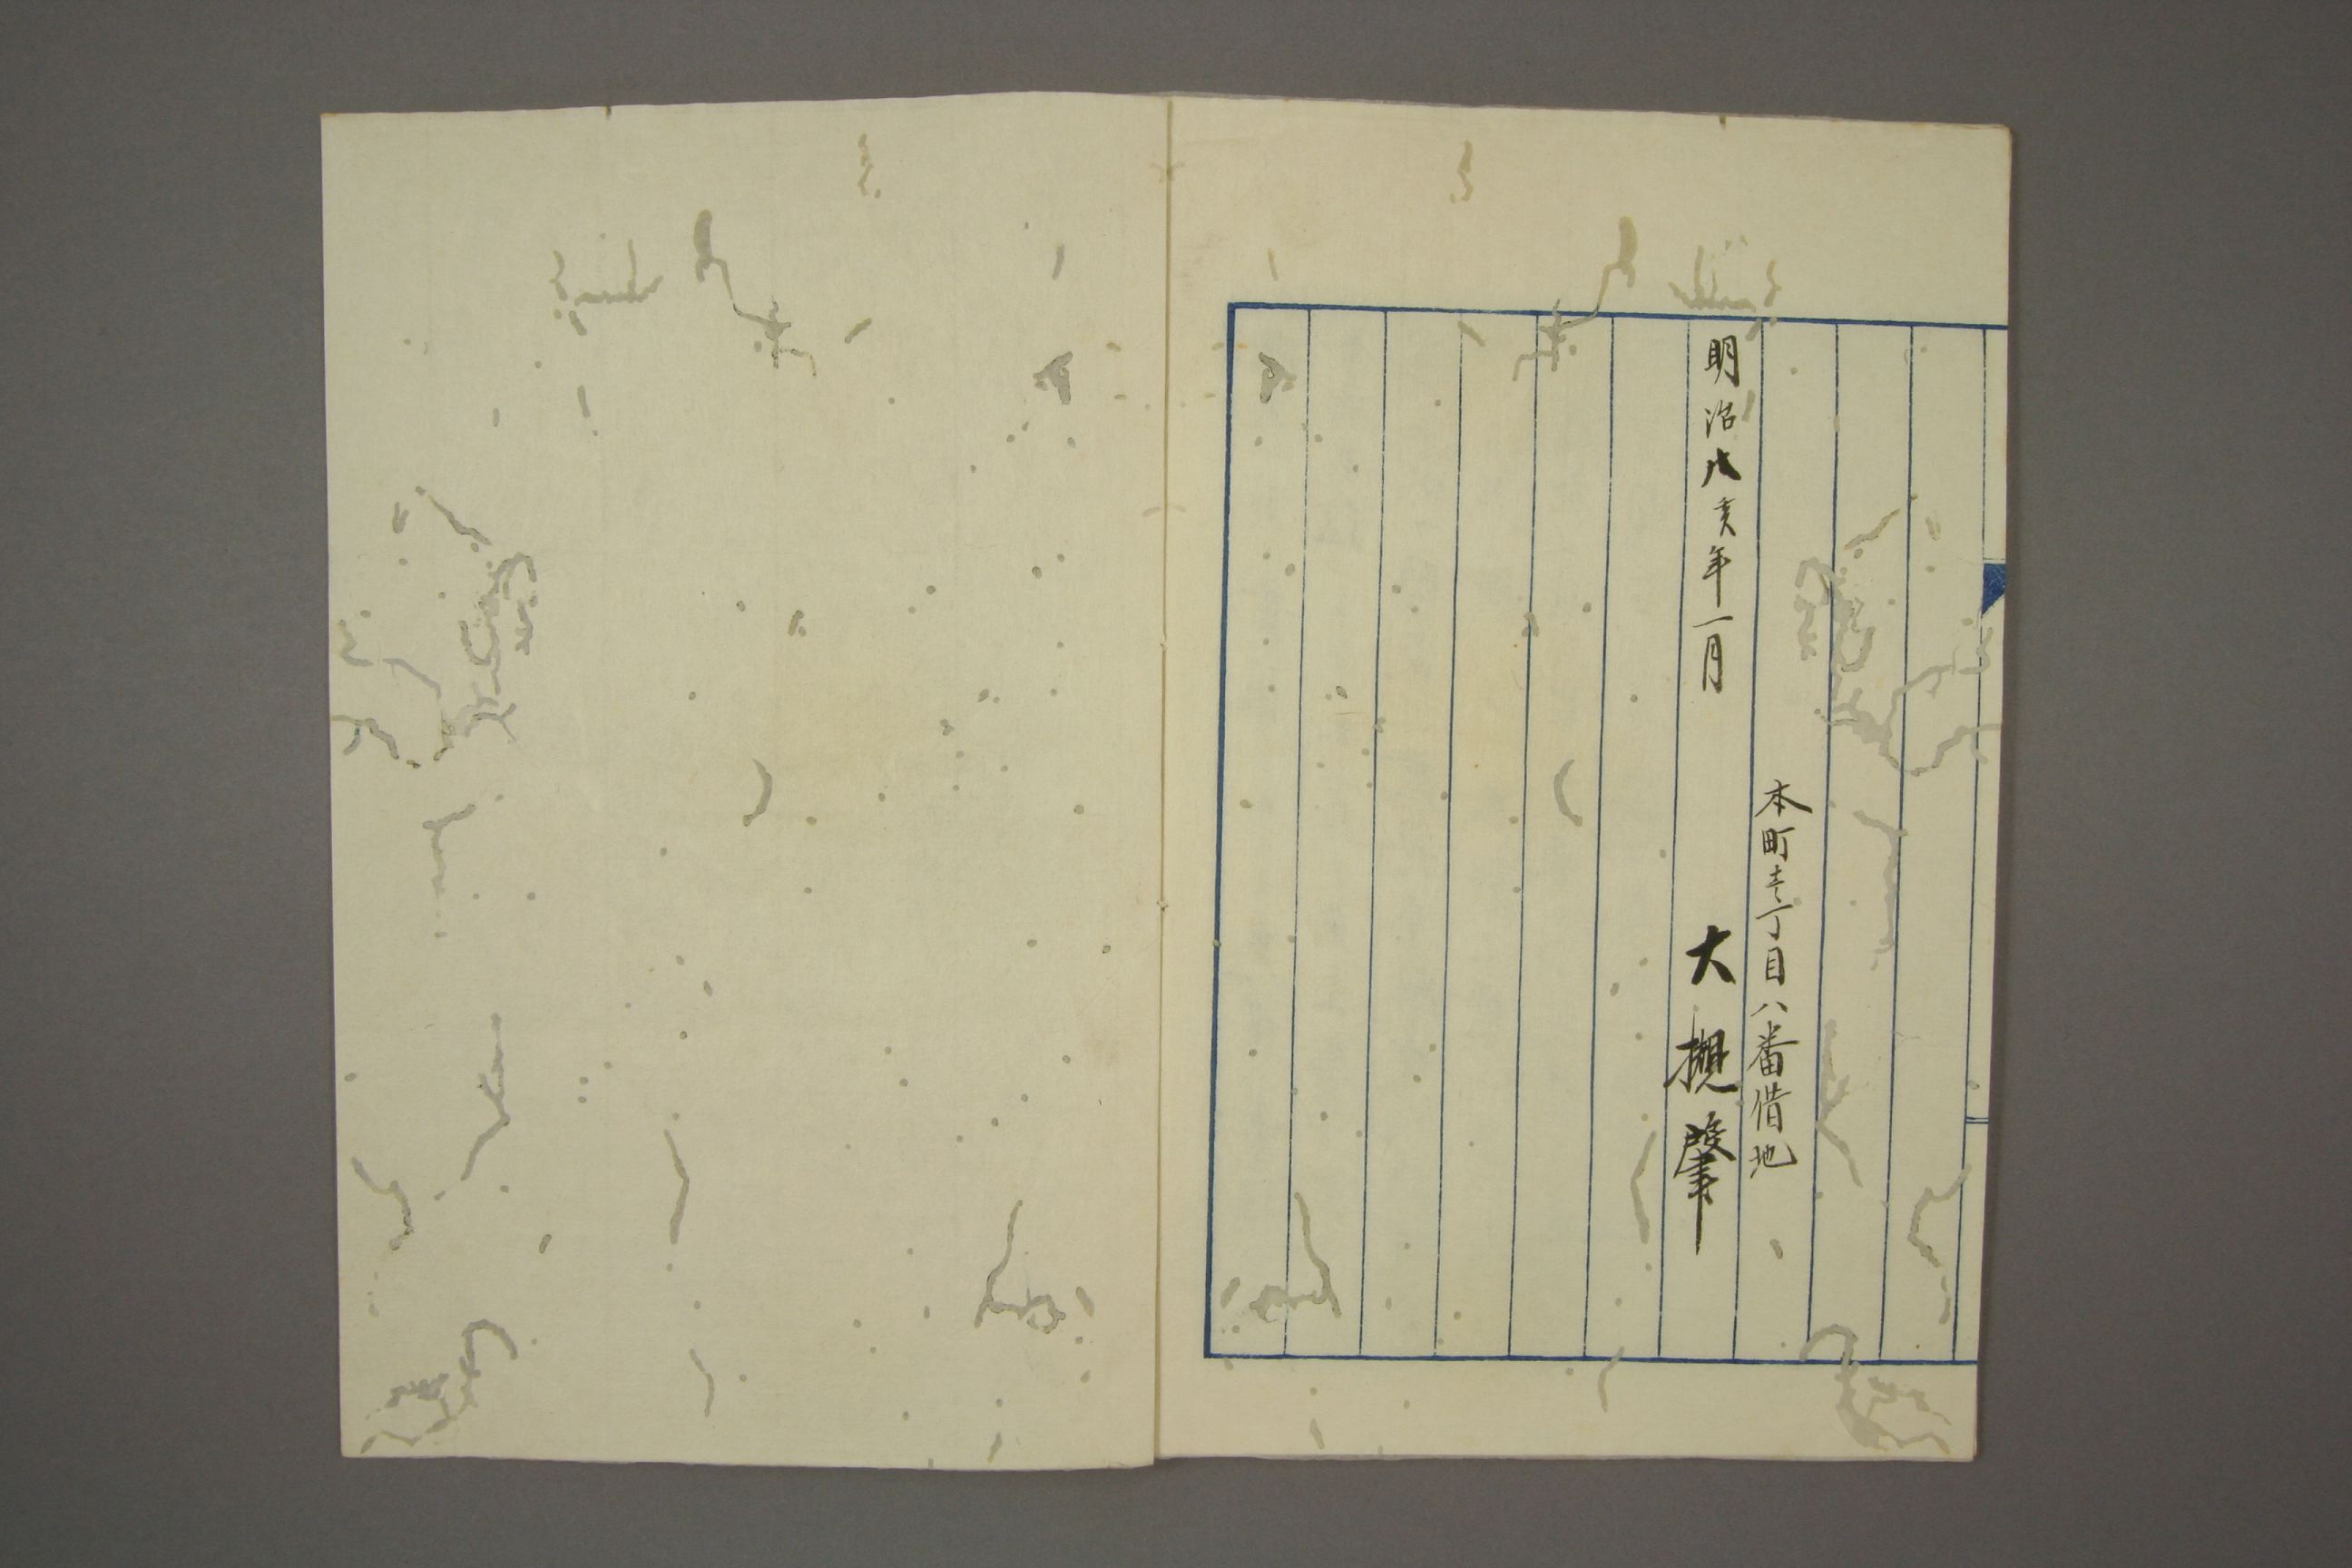 本町壱丁目八番借地
明治八亥年一月　大槻肇